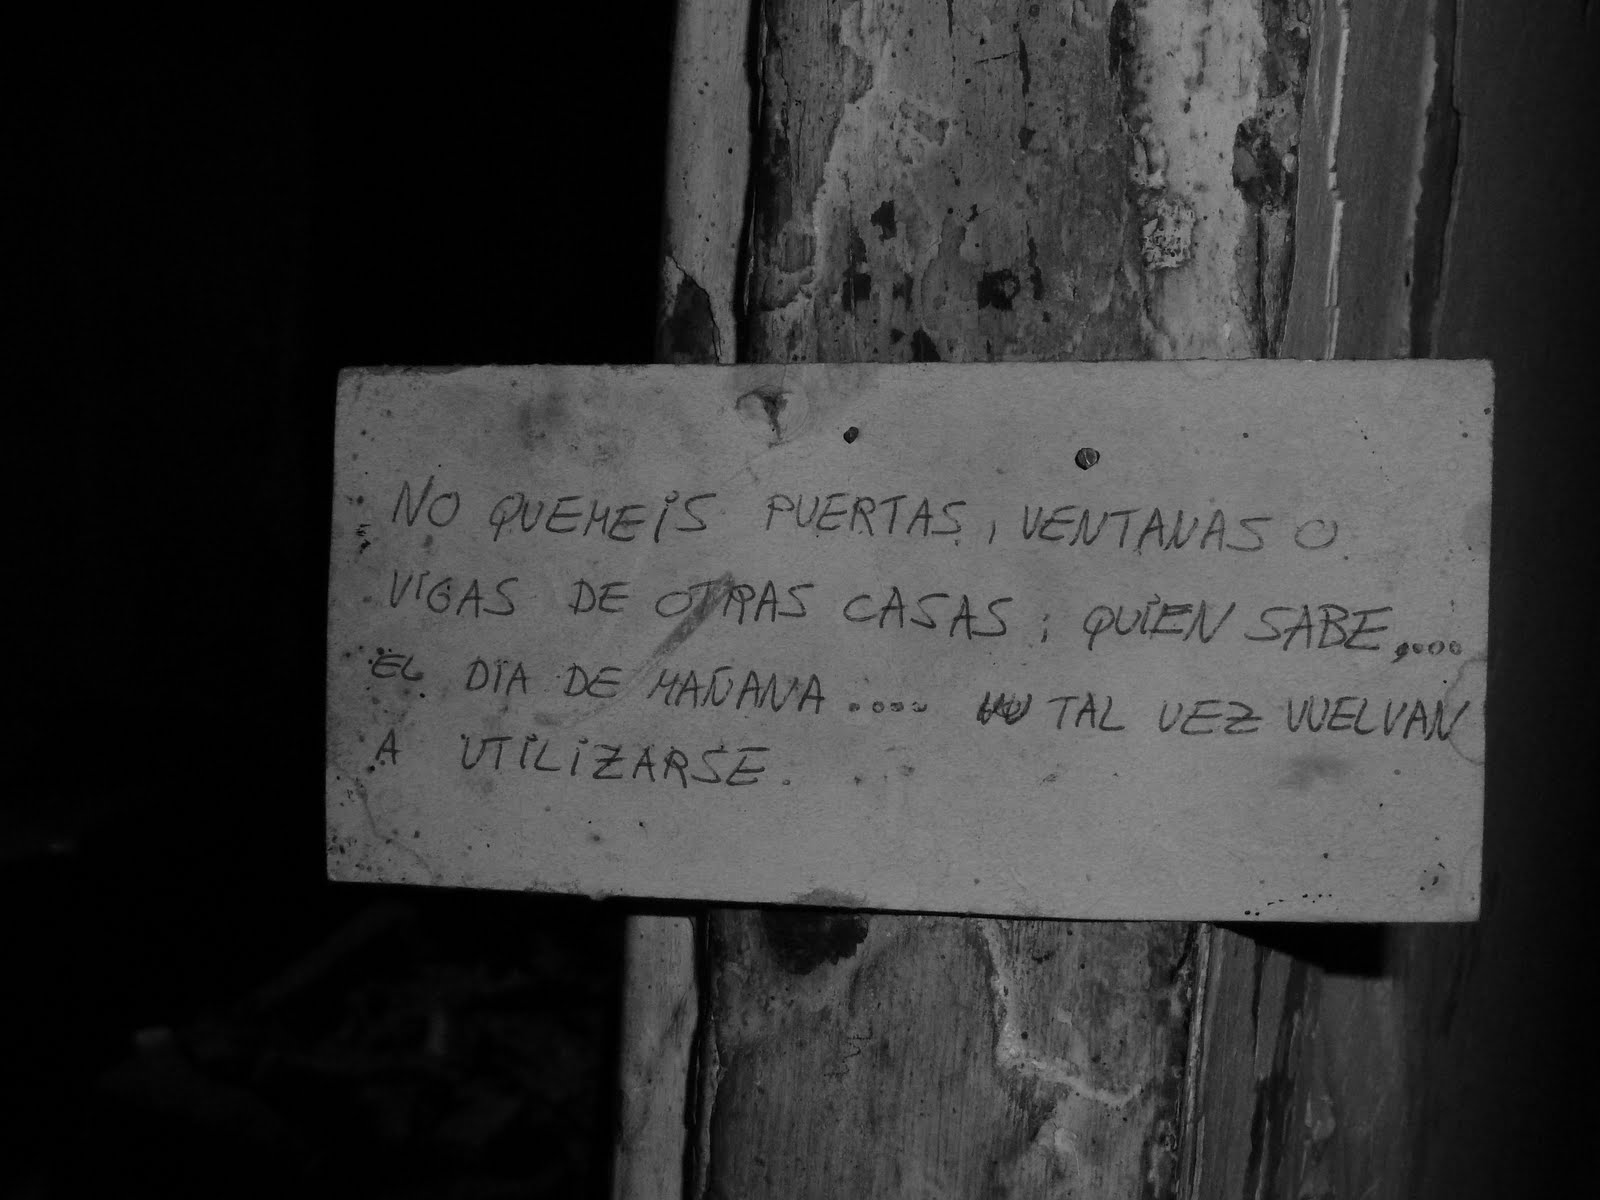 NO QUEMEIS PUERTAS, VENTANAS O
VIGAS DE OTRAS CASAS; QUIEN SABE,....
EL DIA DE MAÑANA .... TAL VEZ VUELVAN
A UTILIZARSE.